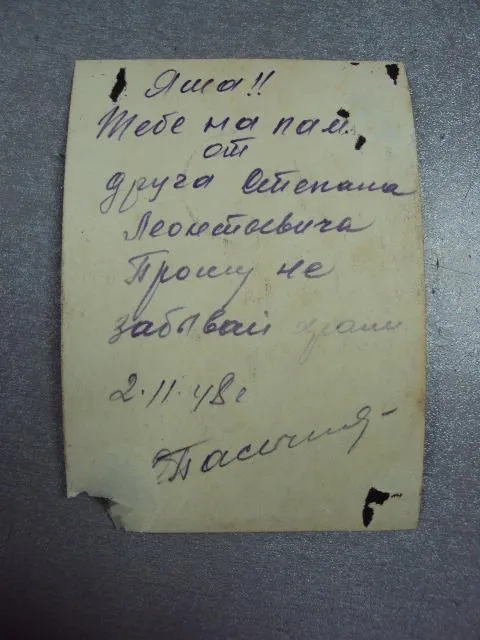 Яша!!
Тебе на пам.
от
друга Степана
Леонтьевича
Прошу не
забывай храни
2.11.48г